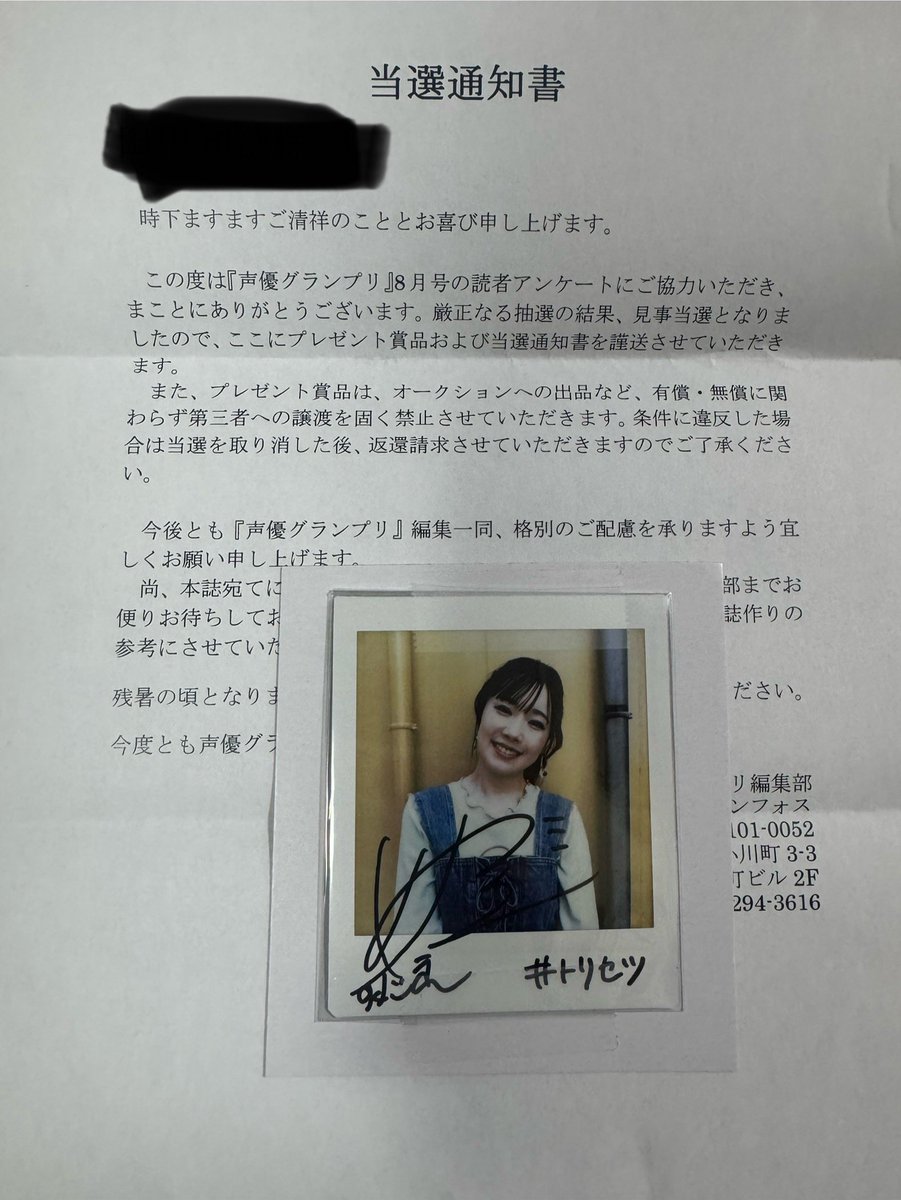 当選通知書
時下ますますご清祥のこととお喜び申し上げます。
この度は『声優グランプリ』8月号の読者アンケートにご協力いただき、
まことにありがとうございます。厳正なる抽選の結果、見事当選となりま
したので、ここにプレゼント賞品および当選通知書を謹送させていただき
ます。
また、プレゼント賞品は、オークションへの出品など、有償・無償に関
わらず第三者への譲渡を固く禁止させていただきます。条件に違反した場
合は当選を取り消した後、返還請求させていただきますのでご了承くださ
い。
今後とも『声優グランプリ』編集一同、格別のご配慮を承りますよう宜
しくお願い申し上げます。
尚、本誌宛てに 部までお
便りお待ちしてお 誌作りの
参考にさせていた
残暑の頃となりま ださい。
今度とも声優グラ
リ編集部
ンフォス
101-0052
小川町 3-3
町ビル 2F
294-3616
#トリセツ